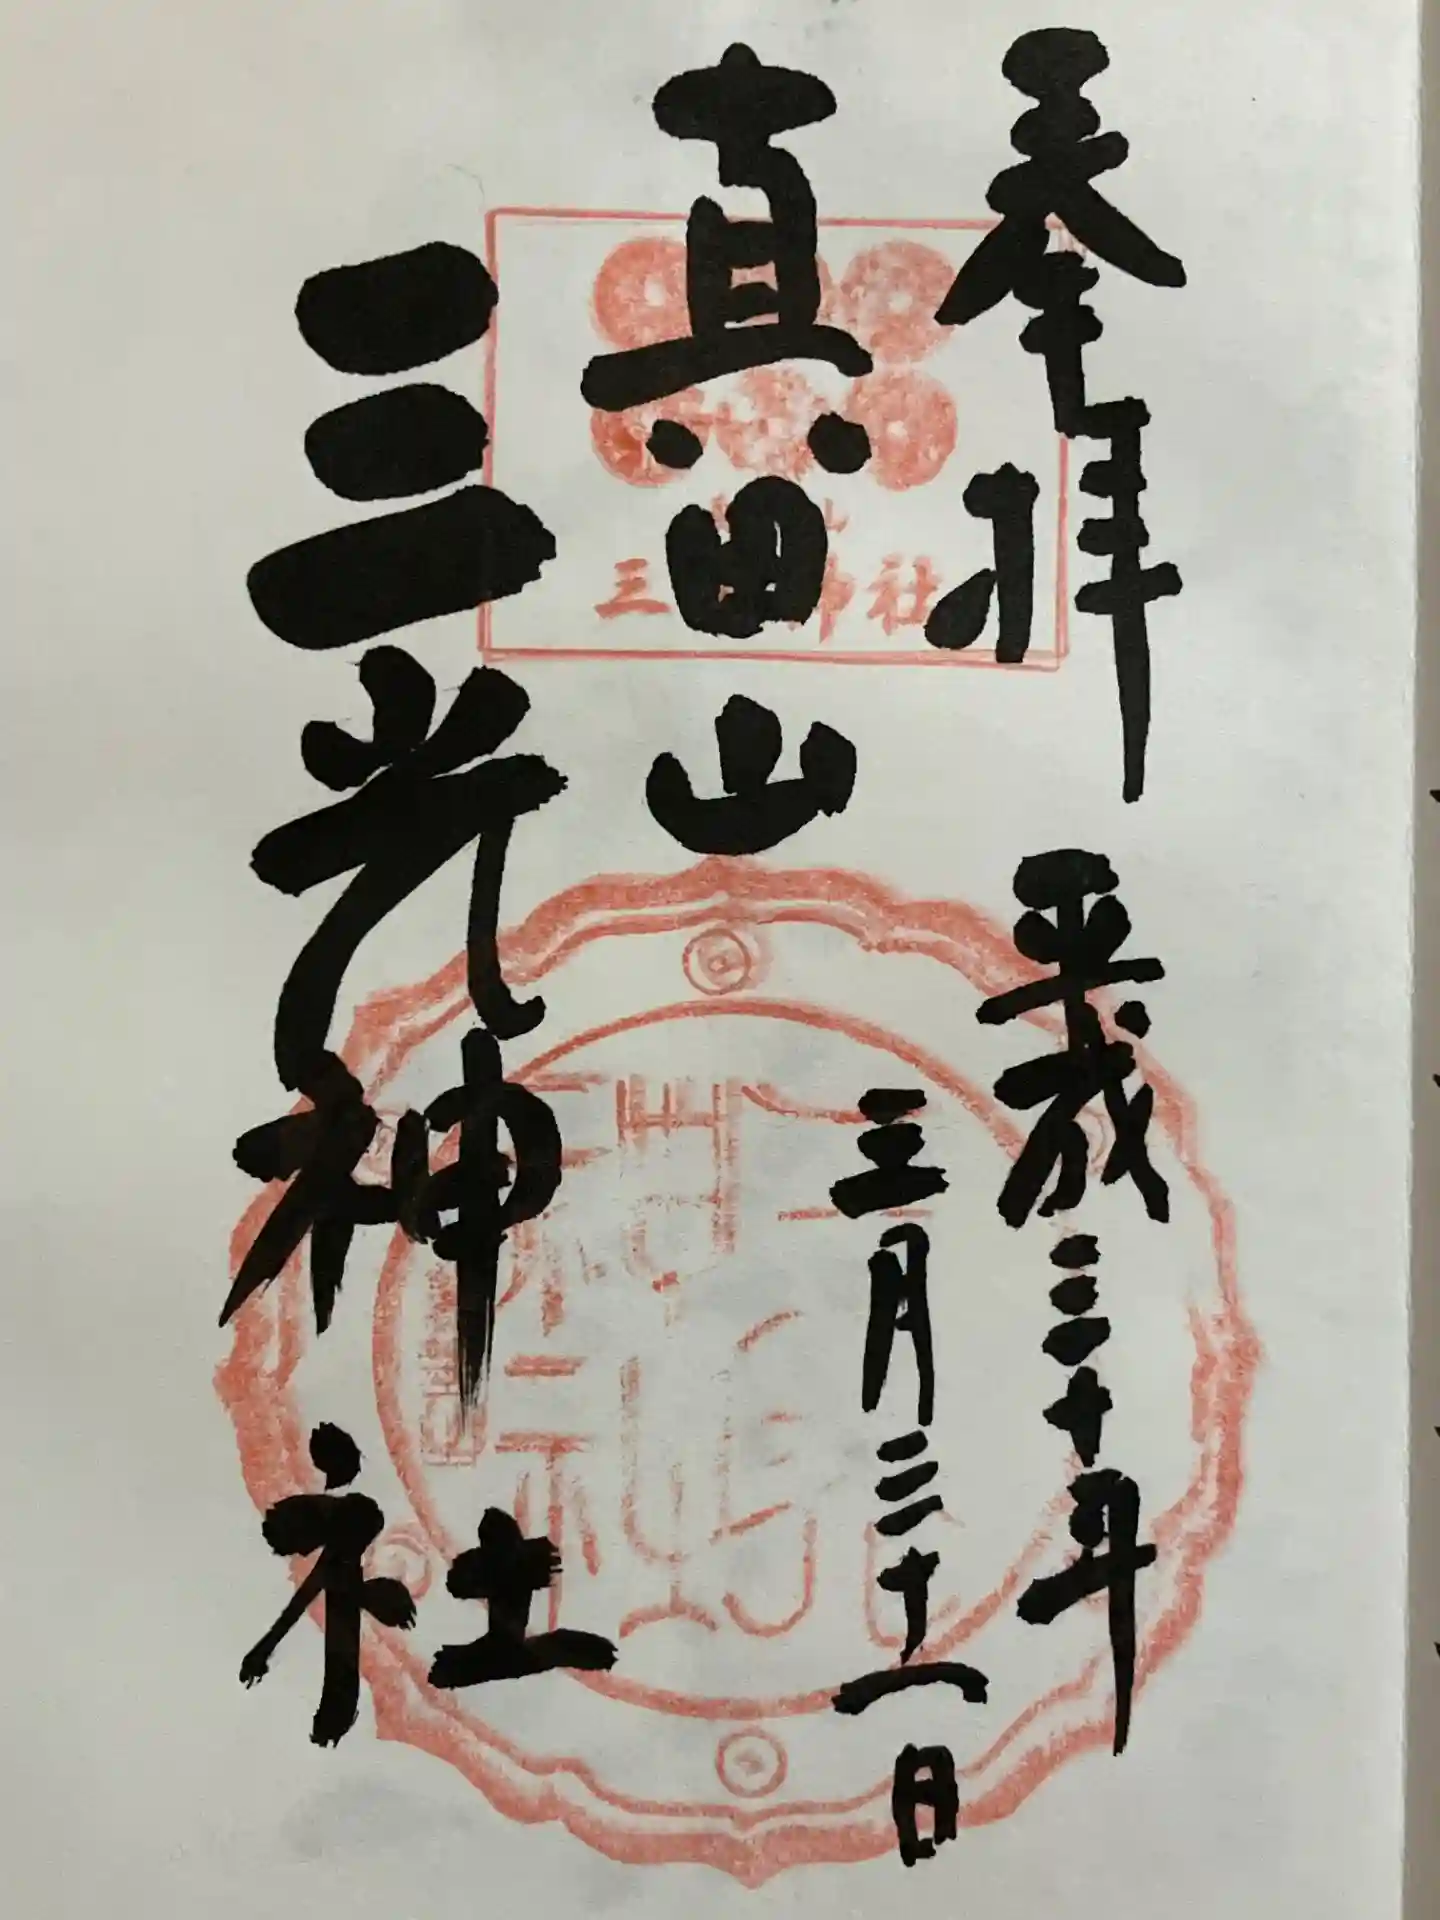 奉拝
平成三十年
三月三十一日
真田山
三光神社
三 神社